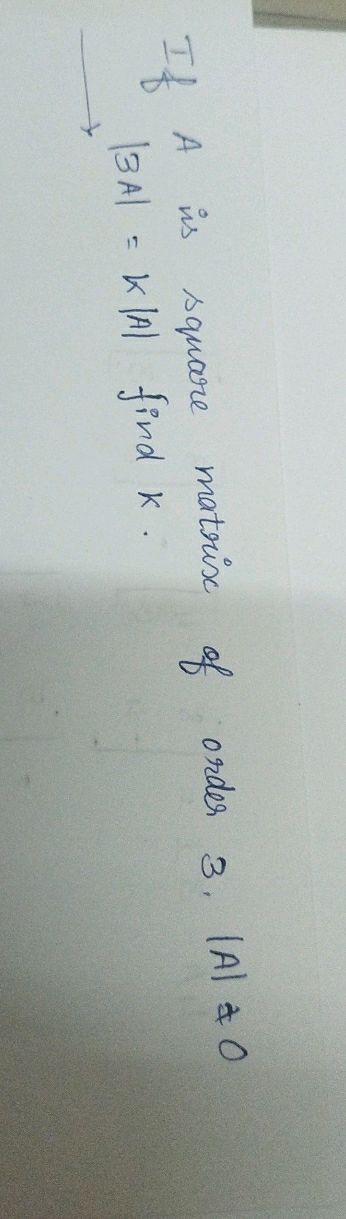 If A is square matrix of order 3, |A| ≠ 0
→ |3A| = K|A| find K.